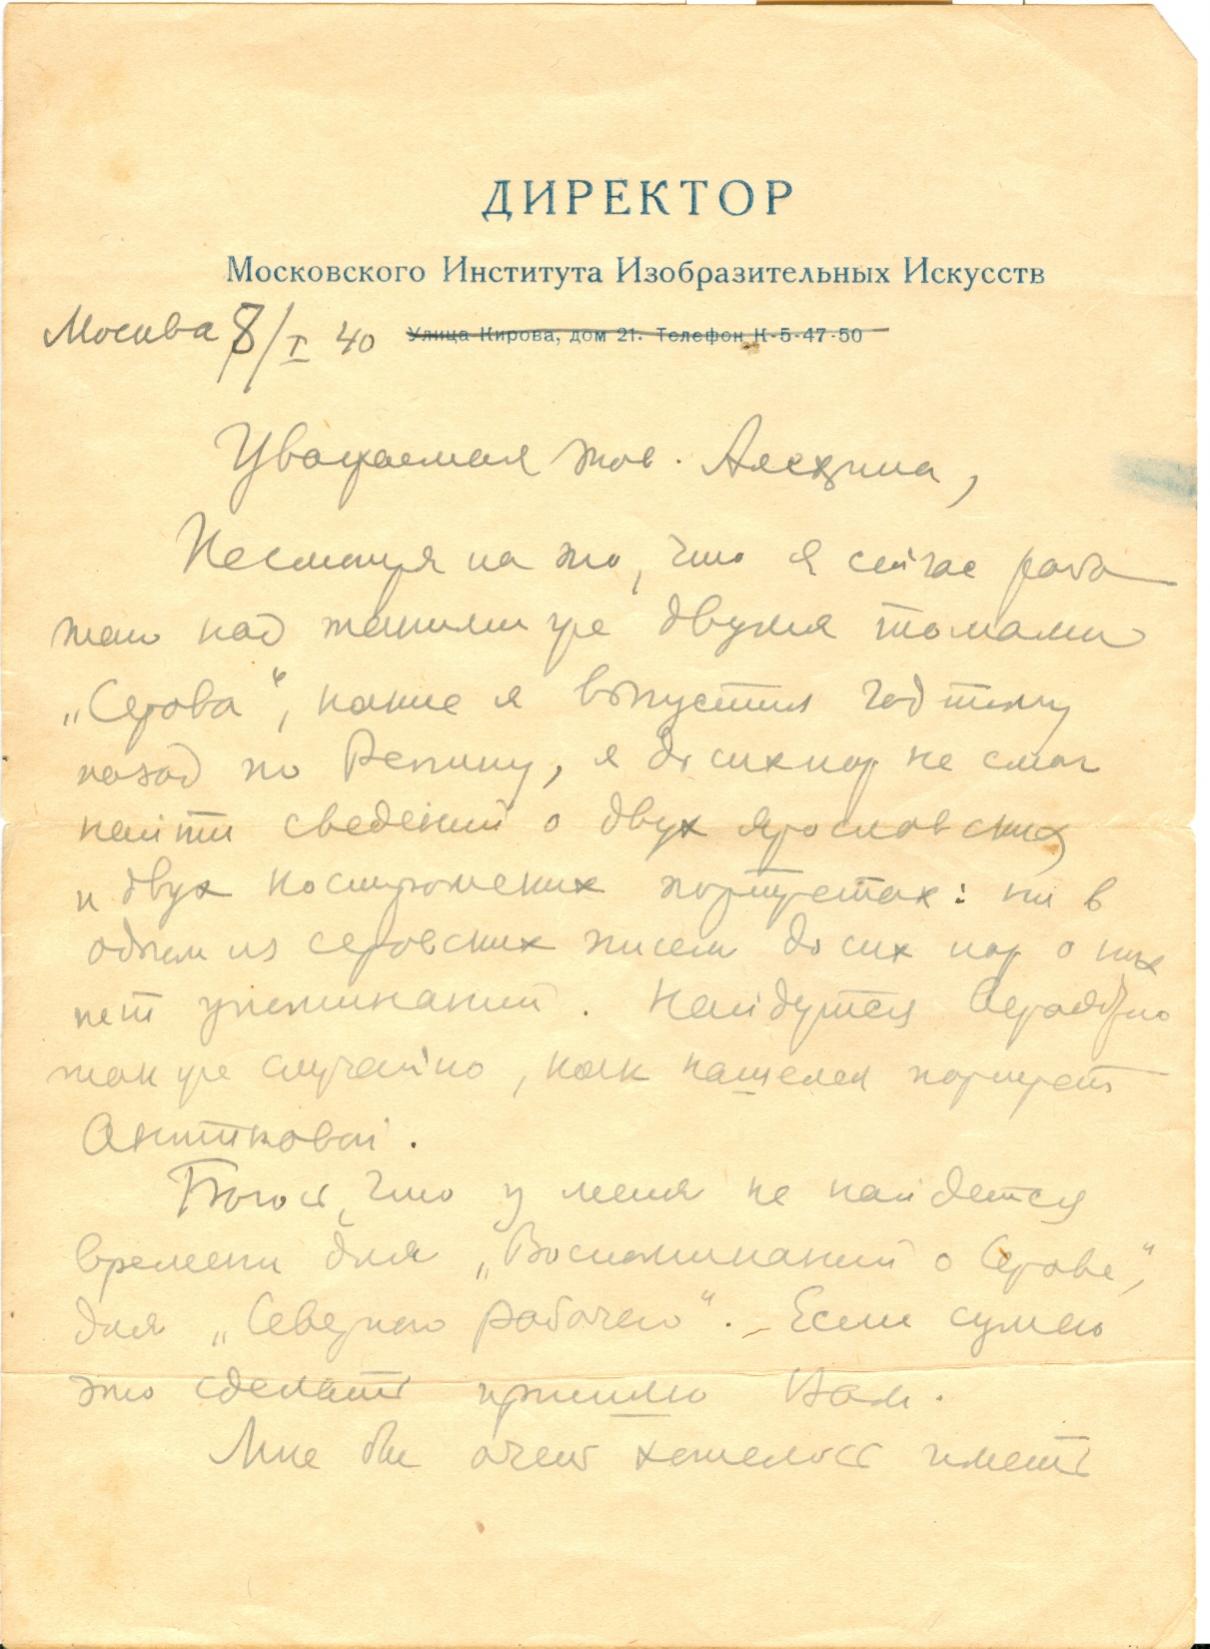 ДИРЕКТОР
Московского Института Изобразительных Искусств
Москва 8/I 40
Улица Кирова, дом 21. Телефон К-5-47-50
Уважаемая тов.
Несмотря на то, что я сейчас рабо
таю над такими же двумя томами
„Серова“, какие я выпустил год тому
назад по Репину, я до сих пор не смог
найти сведений о двух ярославских
и двух костромских портретах: ни в
одном из серовских писем до сих пор о них
нет упоминаний. Найдутся вероятно
так же случайно, как нашелся портрет
Боюсь, что у меня не найдется
времени для „Воспоминаний о Серове“,
для „Северного рабочего“. Если сумею
это сделать пришлю Вам.
Мне бы очень хотелось иметь